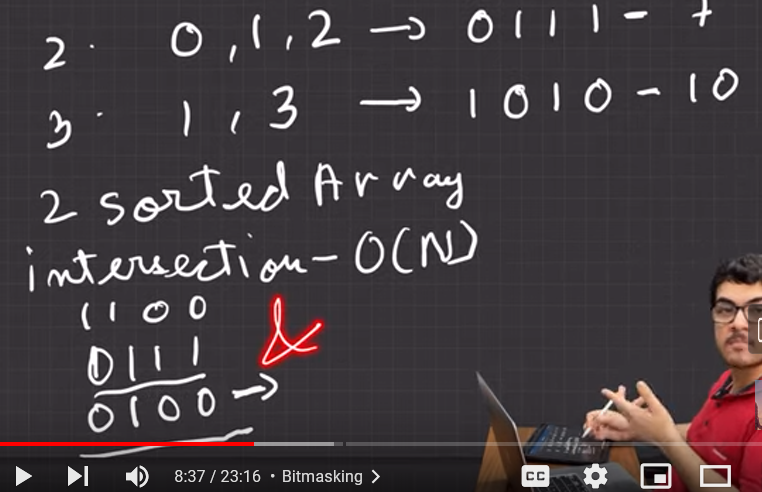 2. 0,1,2 → 0111 - 7
3. 1,3 → 1010 - 10
2 sorted Array
intersection - O(N)
1100
0111 &
0100 →
8:37 / 23:16 • Bitmasking >
CC